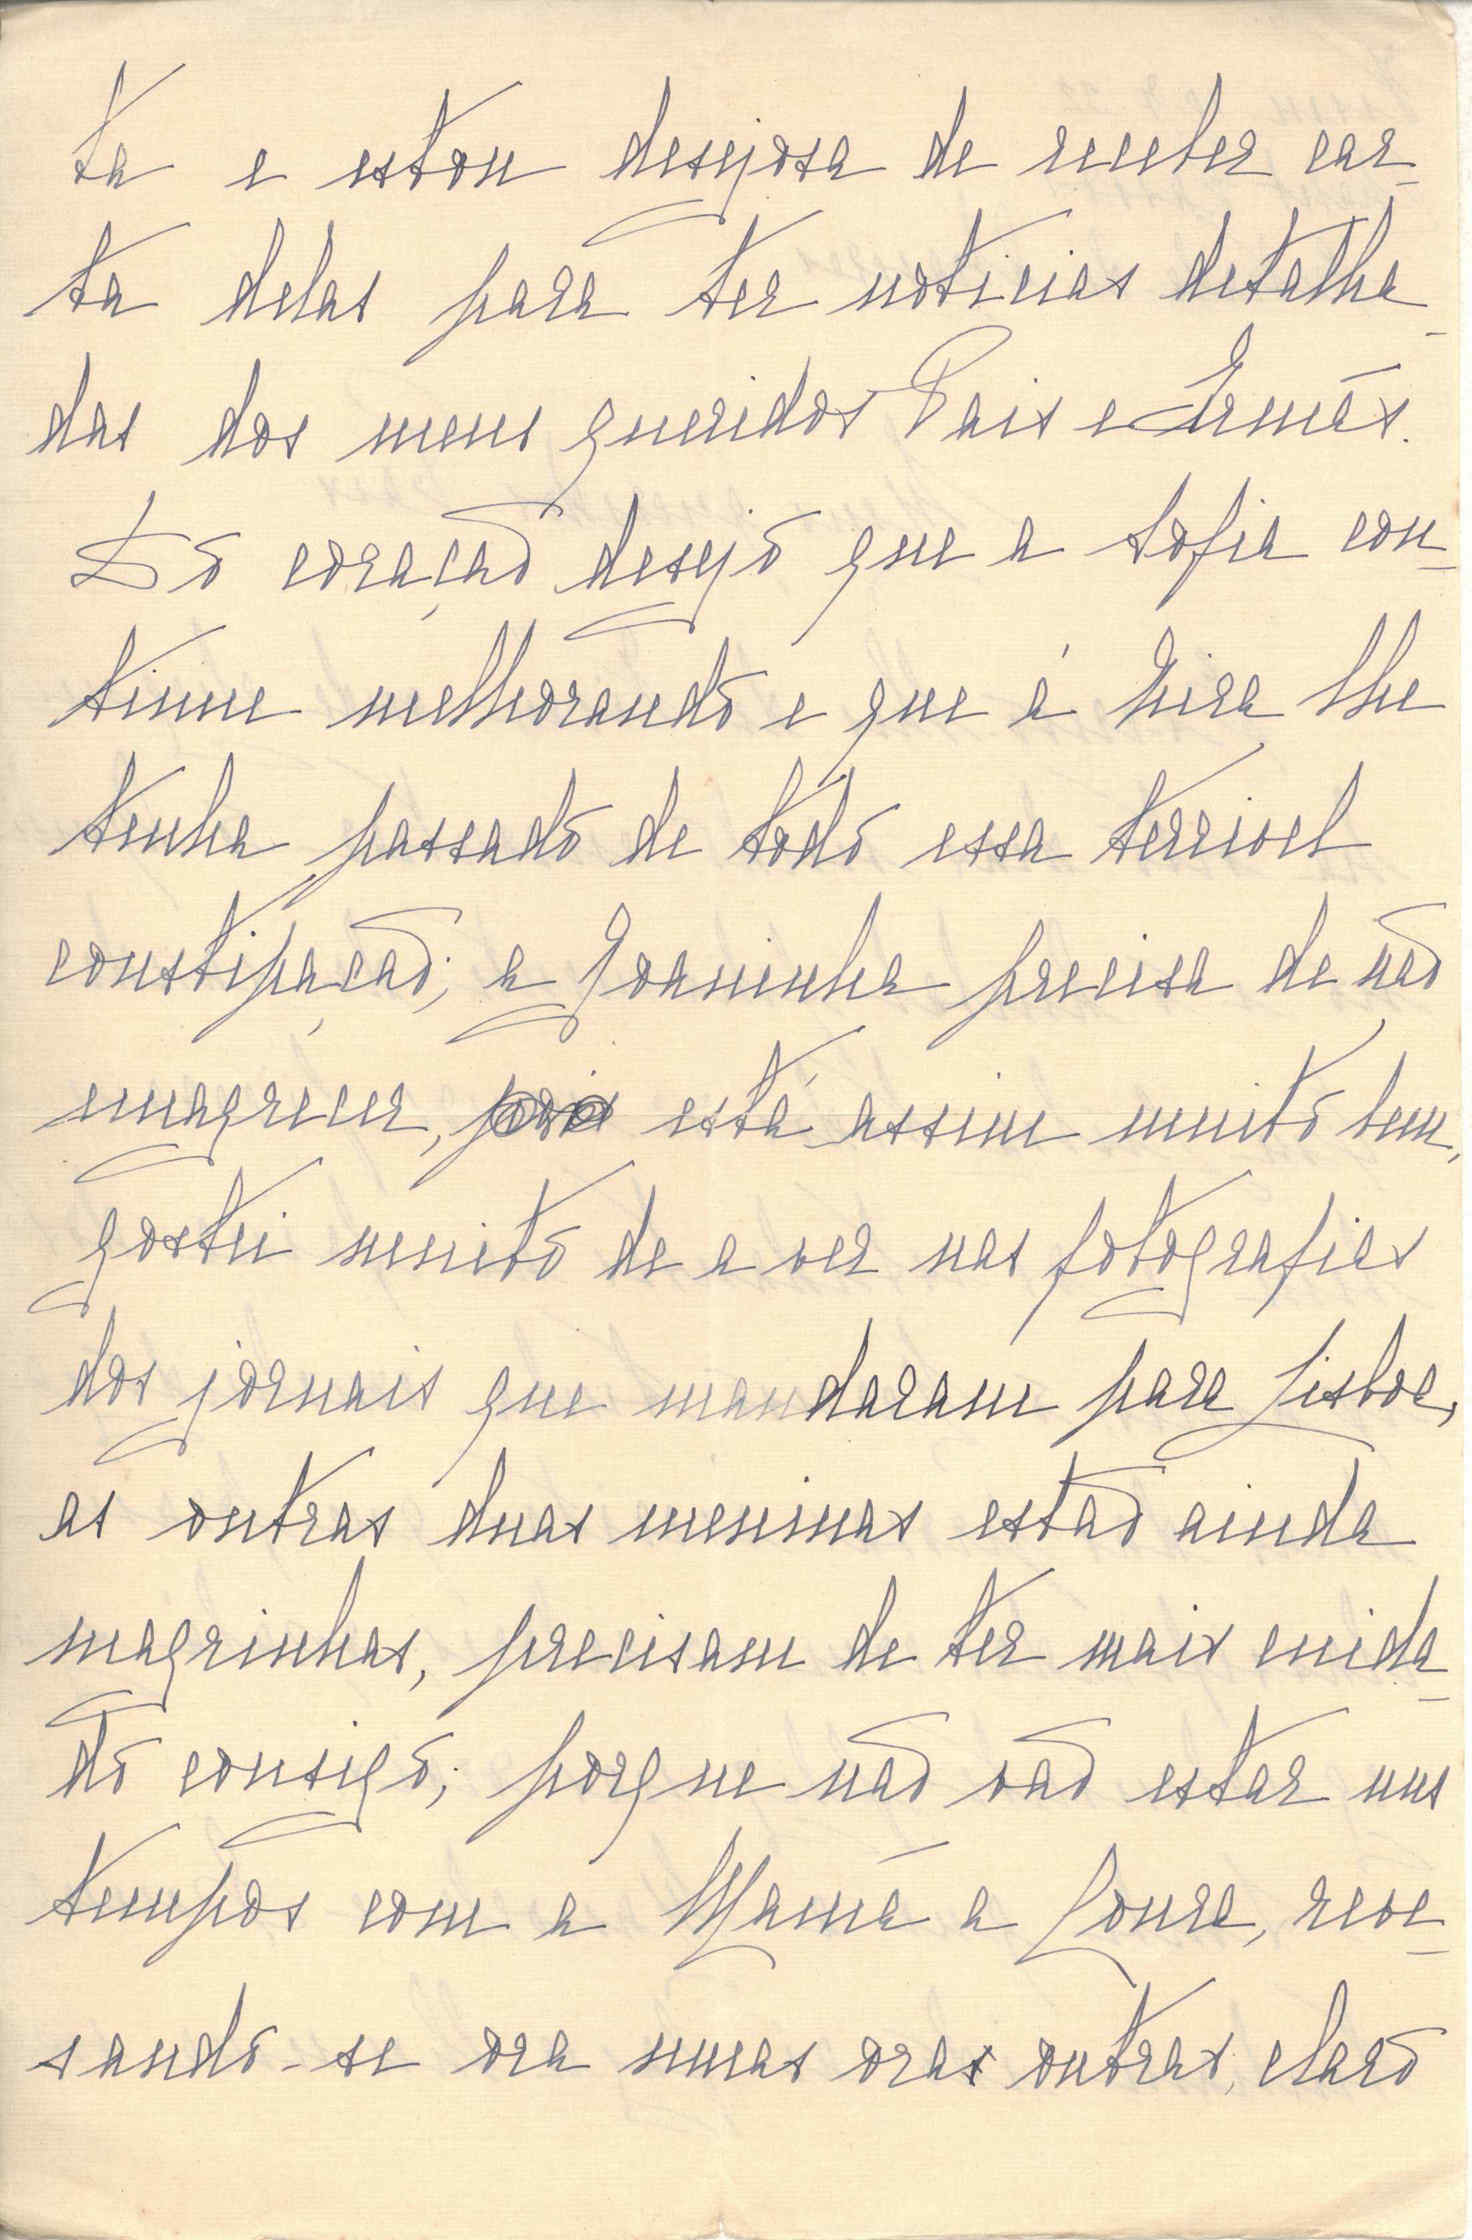 ta e estou desejosa de receber car-
ta delas para ter noticias detalha-
das dos meus queridos Pais e Irmãs.
Dô coração desejo que a Sofia con-
tinue melhorando e que á Nira lhe
tenha passado de todo essa terrivel
constipação; a Joaninha precisa de não
emagrecer, está assim muito bem,
gostei muito de a ver nas fotografias
dos jornais que mandaram para Lisboa,
as outras duas meninas estão ainda
magrinhas, precisam de ter mais cuida-
do consigo; porque não vão estar uns
tempos com a Mamã a Loure, reve-
sando-se ora umas oras outras, claro